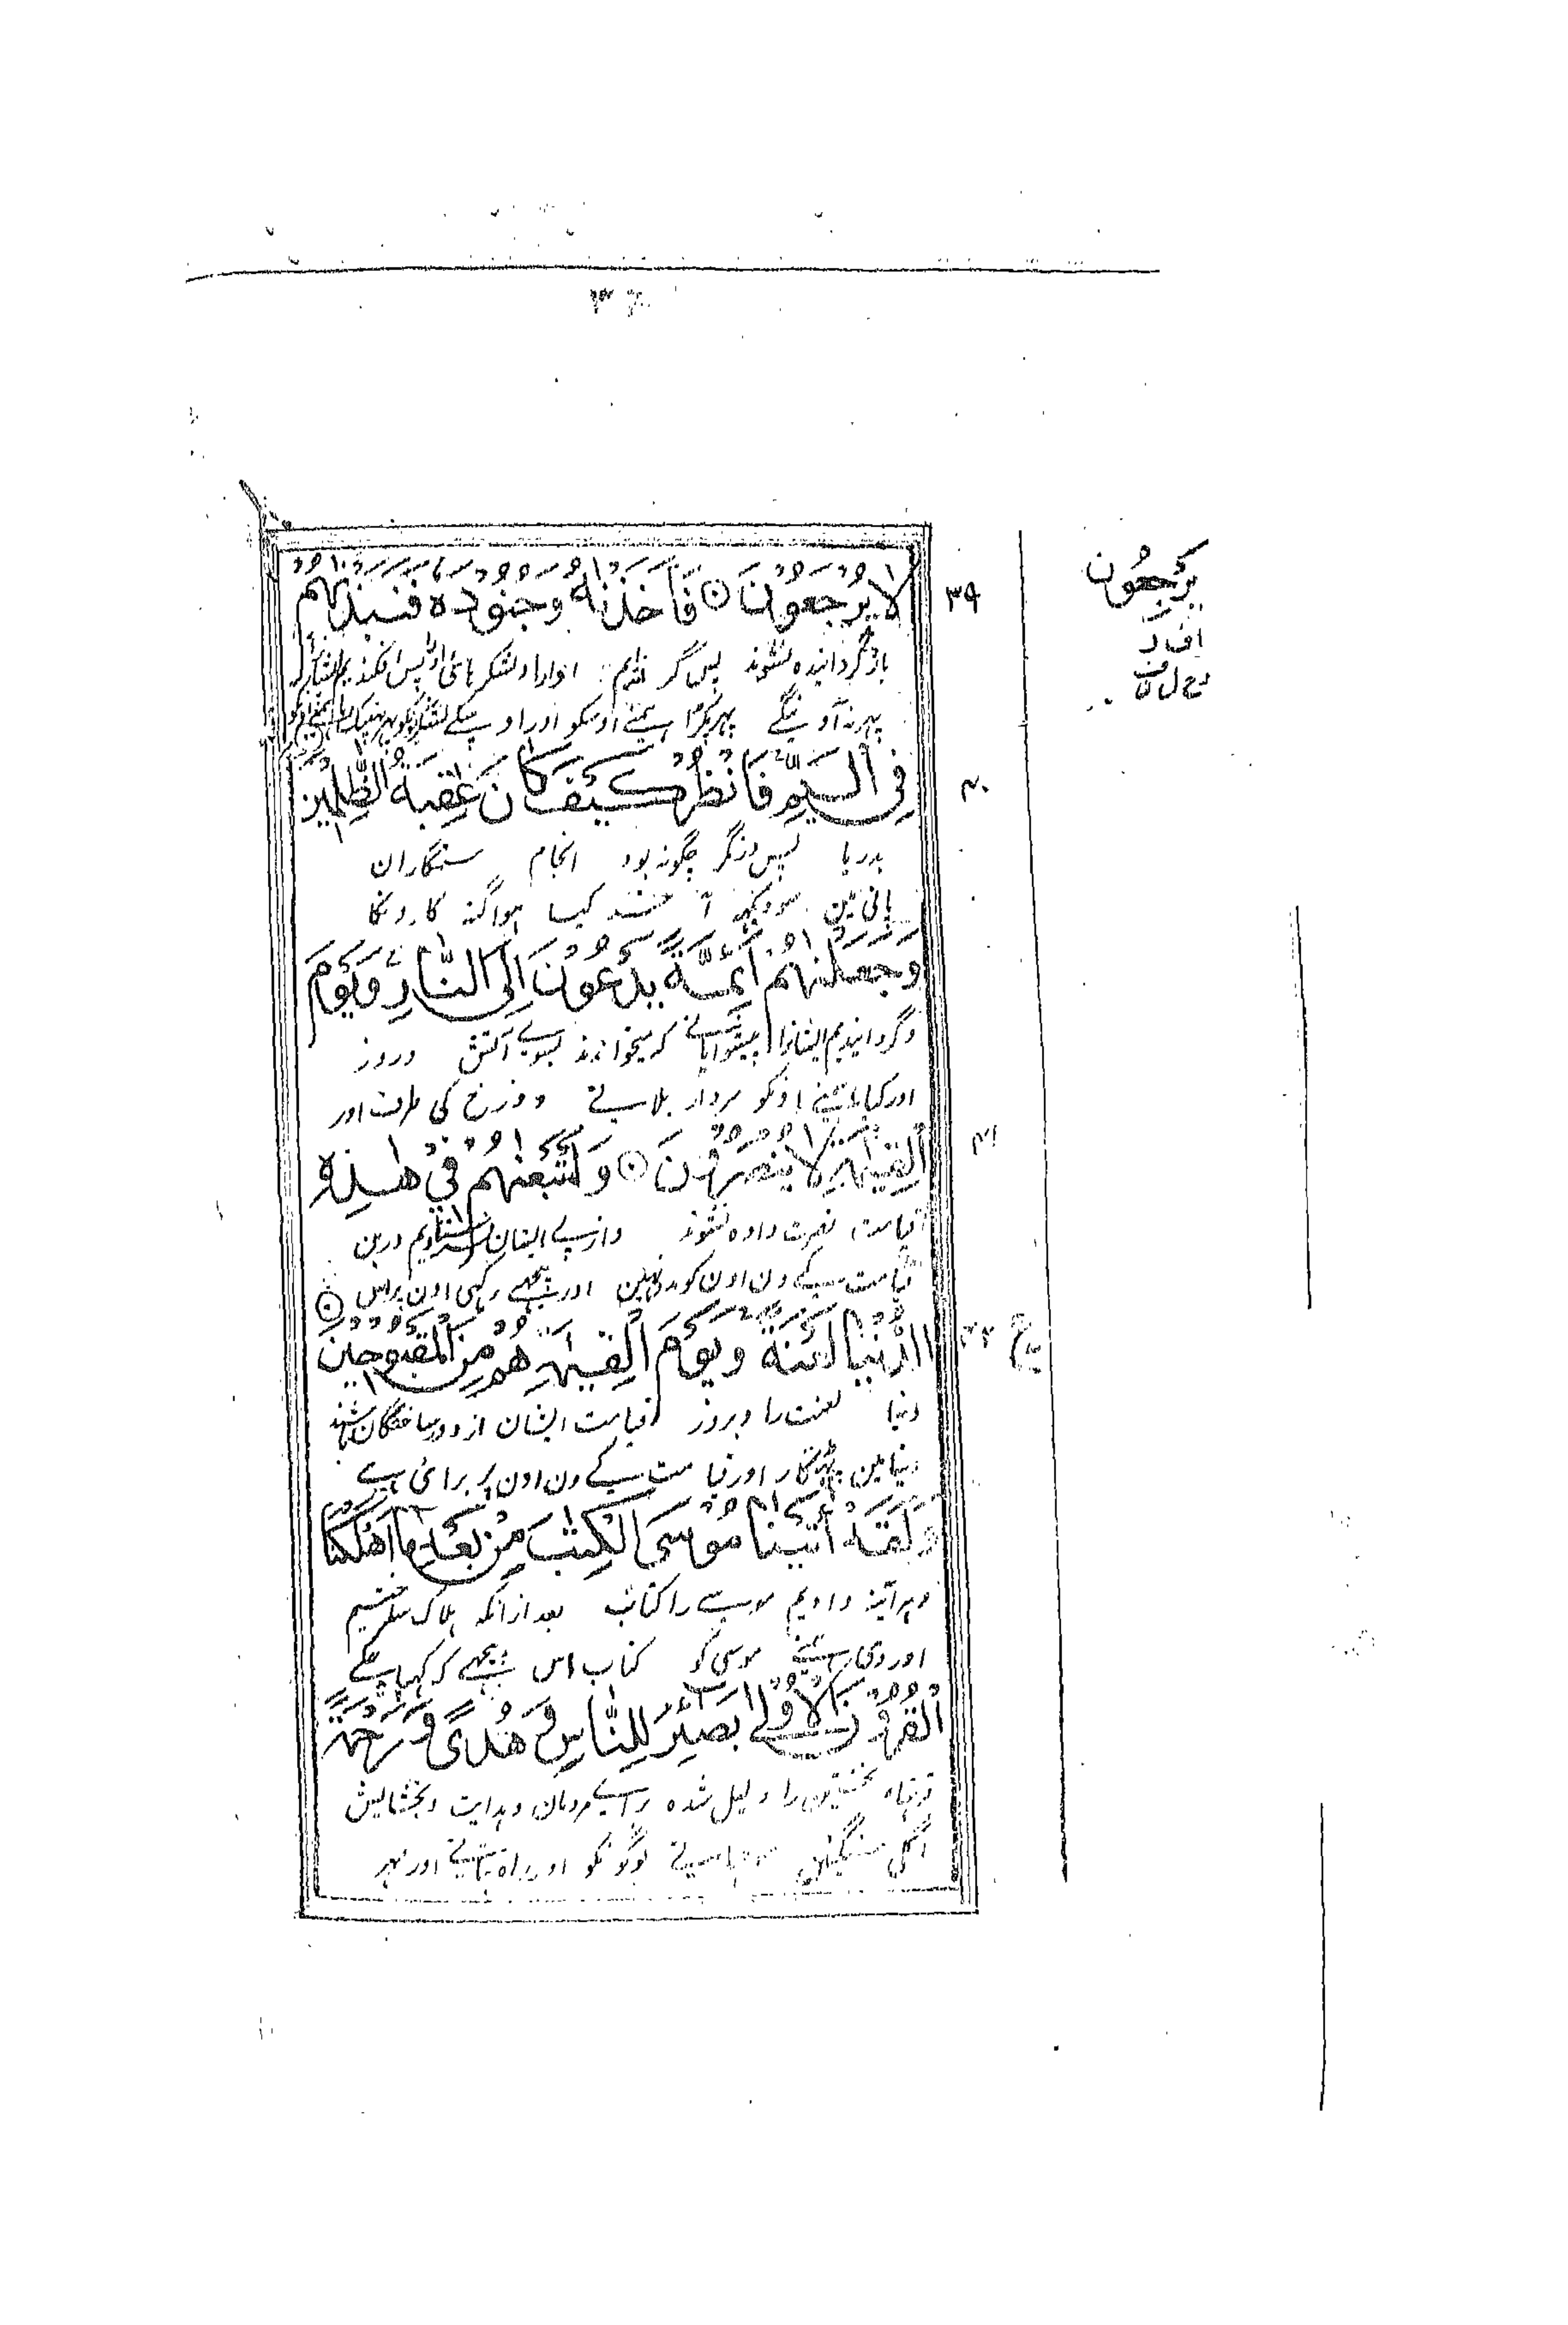 لَا يُرْجَعُوْنَ ۞ فَاَخَذْنٰهُ وَجُنُوْدَهٗ فَنَبَذْنٰهُمْ
٣٩
يُرْجَعُون
باز گردانیده نشوند پس گرفتیم اورا و لشکرهای اورا پس افکندیم ایشانرا
پهر نه آوینگے پهر پکڑا ہمنے اوسکو اور اوسکے لشکرونکو پهر
فِى الْيَمِّ فَانْظُرْ كَيْفَ كَانَ عٰقِبَةُ الظّٰلِمِيْنَ
۴۰
بدریا پس درنگر چگونه بود انجام ستمگاران
پانی مین سو دیکهہ آخر کیسا ہوا گنہ گارونکا
وَجَعَلْنٰهُمْ اَئِمَّةً يَدْعُوْنَ اِلَى النَّارِ وَيَوْمَ
و گردانیدیم ایشانرا پیشوایانے که میخوانند بسوے آتش و روز
اور کیا ہمنے اونکو سردار بلاتے دوزخ کی طرف اور
الْقِيٰمَةِ لَا يُنْصَرُوْنَ ۞ وَاَتْبَعْنٰهُمْ فِيْ هٰذِهِ
۴۱
قیامت نصرت داده نشوند و از پے ایشان فرستادیم درین
قیامت کے دن اون کو مدد نہین اور پیچهے رکهی اون پر اس
الدُّنْيَا لَعْنَةً وَيَوْمَ الْقِيٰمَةِ هُمْ مِنَ الْمَقْبُوْحِيْنَ ۞
۴۲ ع
دنیا لعنت را و بروز قیامت ایشان از دور ساختگان باشند
دنیا مین پهٹکار اور قیامت کے دن اون پر برائی ہے
وَلَقَدْ اٰتَيْنَا مُوْسَى الْكِتٰبَ مِنْ بَعْدِ مَا اَهْلَكْنَا
و هر آئینه دادیم موسے را کتاب بعد از آنکه هلاک ساختیم
اور دی ہمنے موسی کو کتاب اس پیچهے که کهپا چکے
الْقُرُوْنَ الْاُوْلٰى بَصَآئِرَ لِلنَّاسِ وَهُدًى وَّرَحْمَةً
قرنهاے نخستین را دلیل شده براے مردمان و هدایت و بخشایش
اگلی سنگتین لوگونکو اور راه بتاتے اور مہر